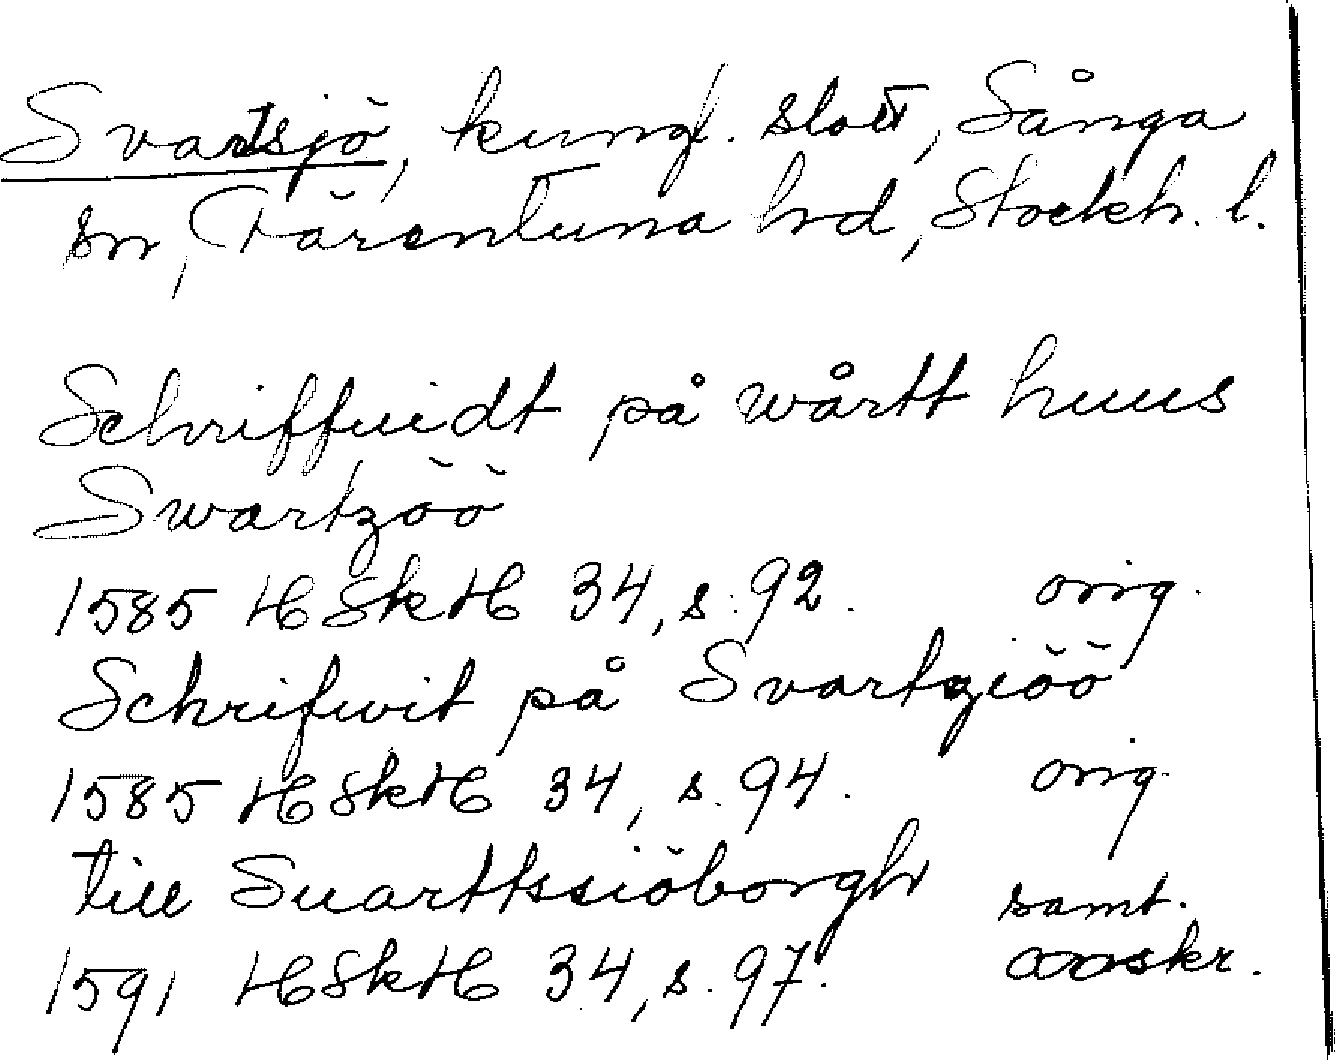 Svartsjö, kungl. slott, Sånga
sn, Färentuna hd, Stockh. l.
Schriffuidt på wårtt huus
Swartzöö
1585 HSkH 34, s. 92. orig.
Schrifwit på Svartziöö
1585 HSkH 34, s. 94. orig.
till Suarttssiöborgh samt.
1591 HSkH 34, s. 97. avskr.